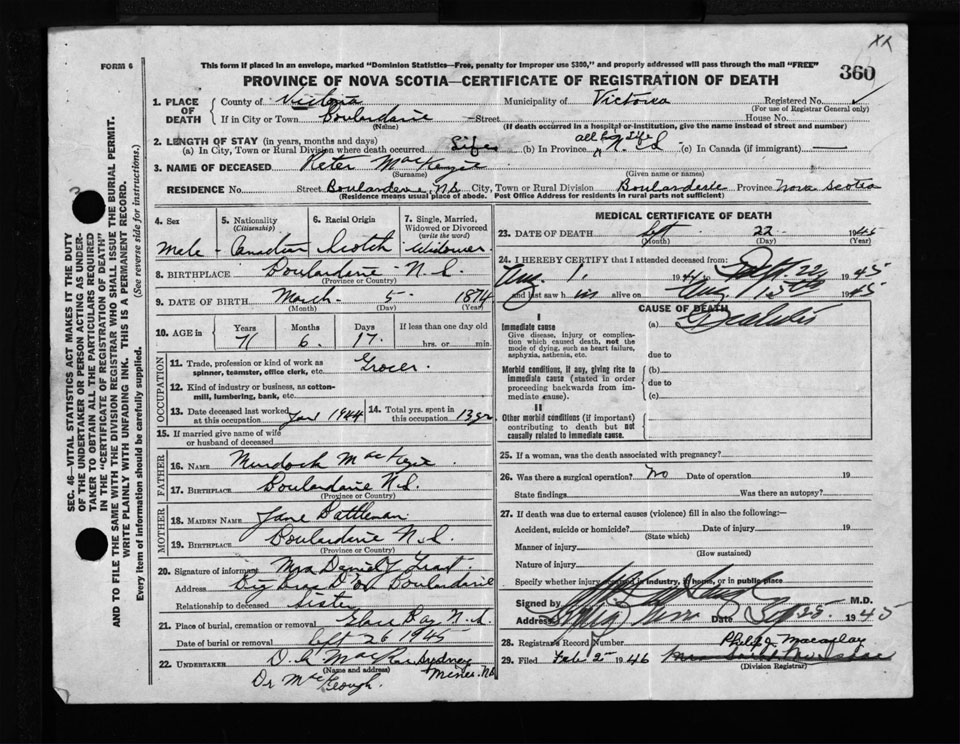 XX
FORM 6
This form if placed in an envelope, marked "Dominion Statistics—Free, penalty for improper use $300," and properly addressed will pass through the mail "FREE"
360
PROVINCE OF NOVA SCOTIA—CERTIFICATE OF REGISTRATION OF DEATH
SEC. 46—VITAL STATISTICS ACT MAKES IT THE DUTY
OF THE UNDERTAKER OR PERSON ACTING AS UNDER-
TAKER TO OBTAIN ALL THE PARTICULARS REQUIRED
IN THE "CERTIFICATE OF REGISTRATION OF DEATH"
AND TO FILE THE SAME WITH THE DIVISION REGISTRAR WHO SHALL ISSUE THE BURIAL PERMIT.
WRITE PLAINLY WITH UNFADING INK. THIS IS A PERMANENT RECORD.
Every item of information should be carefully supplied. (See reverse side for instructions.)
1. PLACE OF DEATH
County of Victoria Municipality of Victoria Registered No.
(For use of Registrar General only)
If in City or Town Boulardarie Street House No.
(Name) (If death occurred in a hospital or institution, give the name instead of street and number)
2. LENGTH OF STAY (in years, months and days)
(a) In City, Town or Rural Division where death occurred Life (b) In Province all his life N. S. (c) In Canada (if immigrant) —
3. NAME OF DECEASED Peter MacKenzie
(Surname) (Given name or names)
RESIDENCE No. Street Boularderie, N.S. City, Town or Rural Division Boularderie Province Nova Scotia
(Residence means usual place of abode. Post Office Address for residents in rural parts not sufficient)
4. Sex
Male
5. Nationality
(Citizenship)
Canadian
6. Racial Origin
Scotch
7. Single, Married,
Widowed or Divorced
(write the word)
Widower
8. BIRTHPLACE Boulardarie - N.S.
(Province or Country)
9. DATE OF BIRTH March - 5 - 1874
(Month) (Day) (Year)
10. AGE in
Years Months Days If less than one day old
71 6 17 hrs. or min.
OCCUPATION
11. Trade, profession or kind of work as Grocer
spinner, teamster, office clerk, etc.
12. Kind of industry or business, as cotton-
mill, lumbering, bank, etc.
13. Date deceased last worked
at this occupation Jan 1944
14. Total yrs. spent in
this occupation 13 yrs
15. If married give name of wife
or husband of deceased
FATHER
16. NAME Murdoch MacKenzie
17. BIRTHPLACE Boulardarie N.S.
(Province or Country)
MOTHER
18. MAIDEN NAME Jane
19. BIRTHPLACE Boulardarie N.S.
(Province or Country)
20. Signature of informant Mrs Daniel
Address Big Bras D'or Boulardarie
Relationship to deceased Sister
21. Place of burial, cremation or removal Glace Bay N.S.
Date of burial or removal Sept 26 1945
22. UNDERTAKER Sydney
(Name and address) Mines. NS
Dr MacKeough.
MEDICAL CERTIFICATE OF DEATH
23. DATE OF DEATH Sept. 22 1945
(Month) (Day) (Year)
24. I HEREBY CERTIFY that I attended deceased from:
Aug 1. to Sept. 22 1945
and last saw him alive on Aug 15th 1945
CAUSE OF DEATH
I
Immediate cause (a)
Give disease, injury or complica-
tion which caused death, not the
mode of dying, such as heart failure,
asphyxia, asthenia, etc. due to
Morbid conditions, if any, giving rise to (b)
immediate cause (stated in order due to
proceeding backwards from im-
mediate cause). (c)
II
Other morbid conditions (if important)
contributing to death but not
causally related to immediate cause.
25. If a woman, was the death associated with pregnancy?
26. Was there a surgical operation? No Date of operation 19
State findings Was there an autopsy?
27. If death was due to external causes (violence) fill in also the following:—
Accident, suicide or homicide? Date of injury 19
(State which)
Manner of injury
(How sustained)
Nature of injury
Specify whether injury occurred in industry, in home, or in public place
Signed by M.D.
Address Date Sep 25 1945
28. Registrar's Record Number Philip J Macaulay
29. Filed Feb 2nd 1946
(Division Registrar)